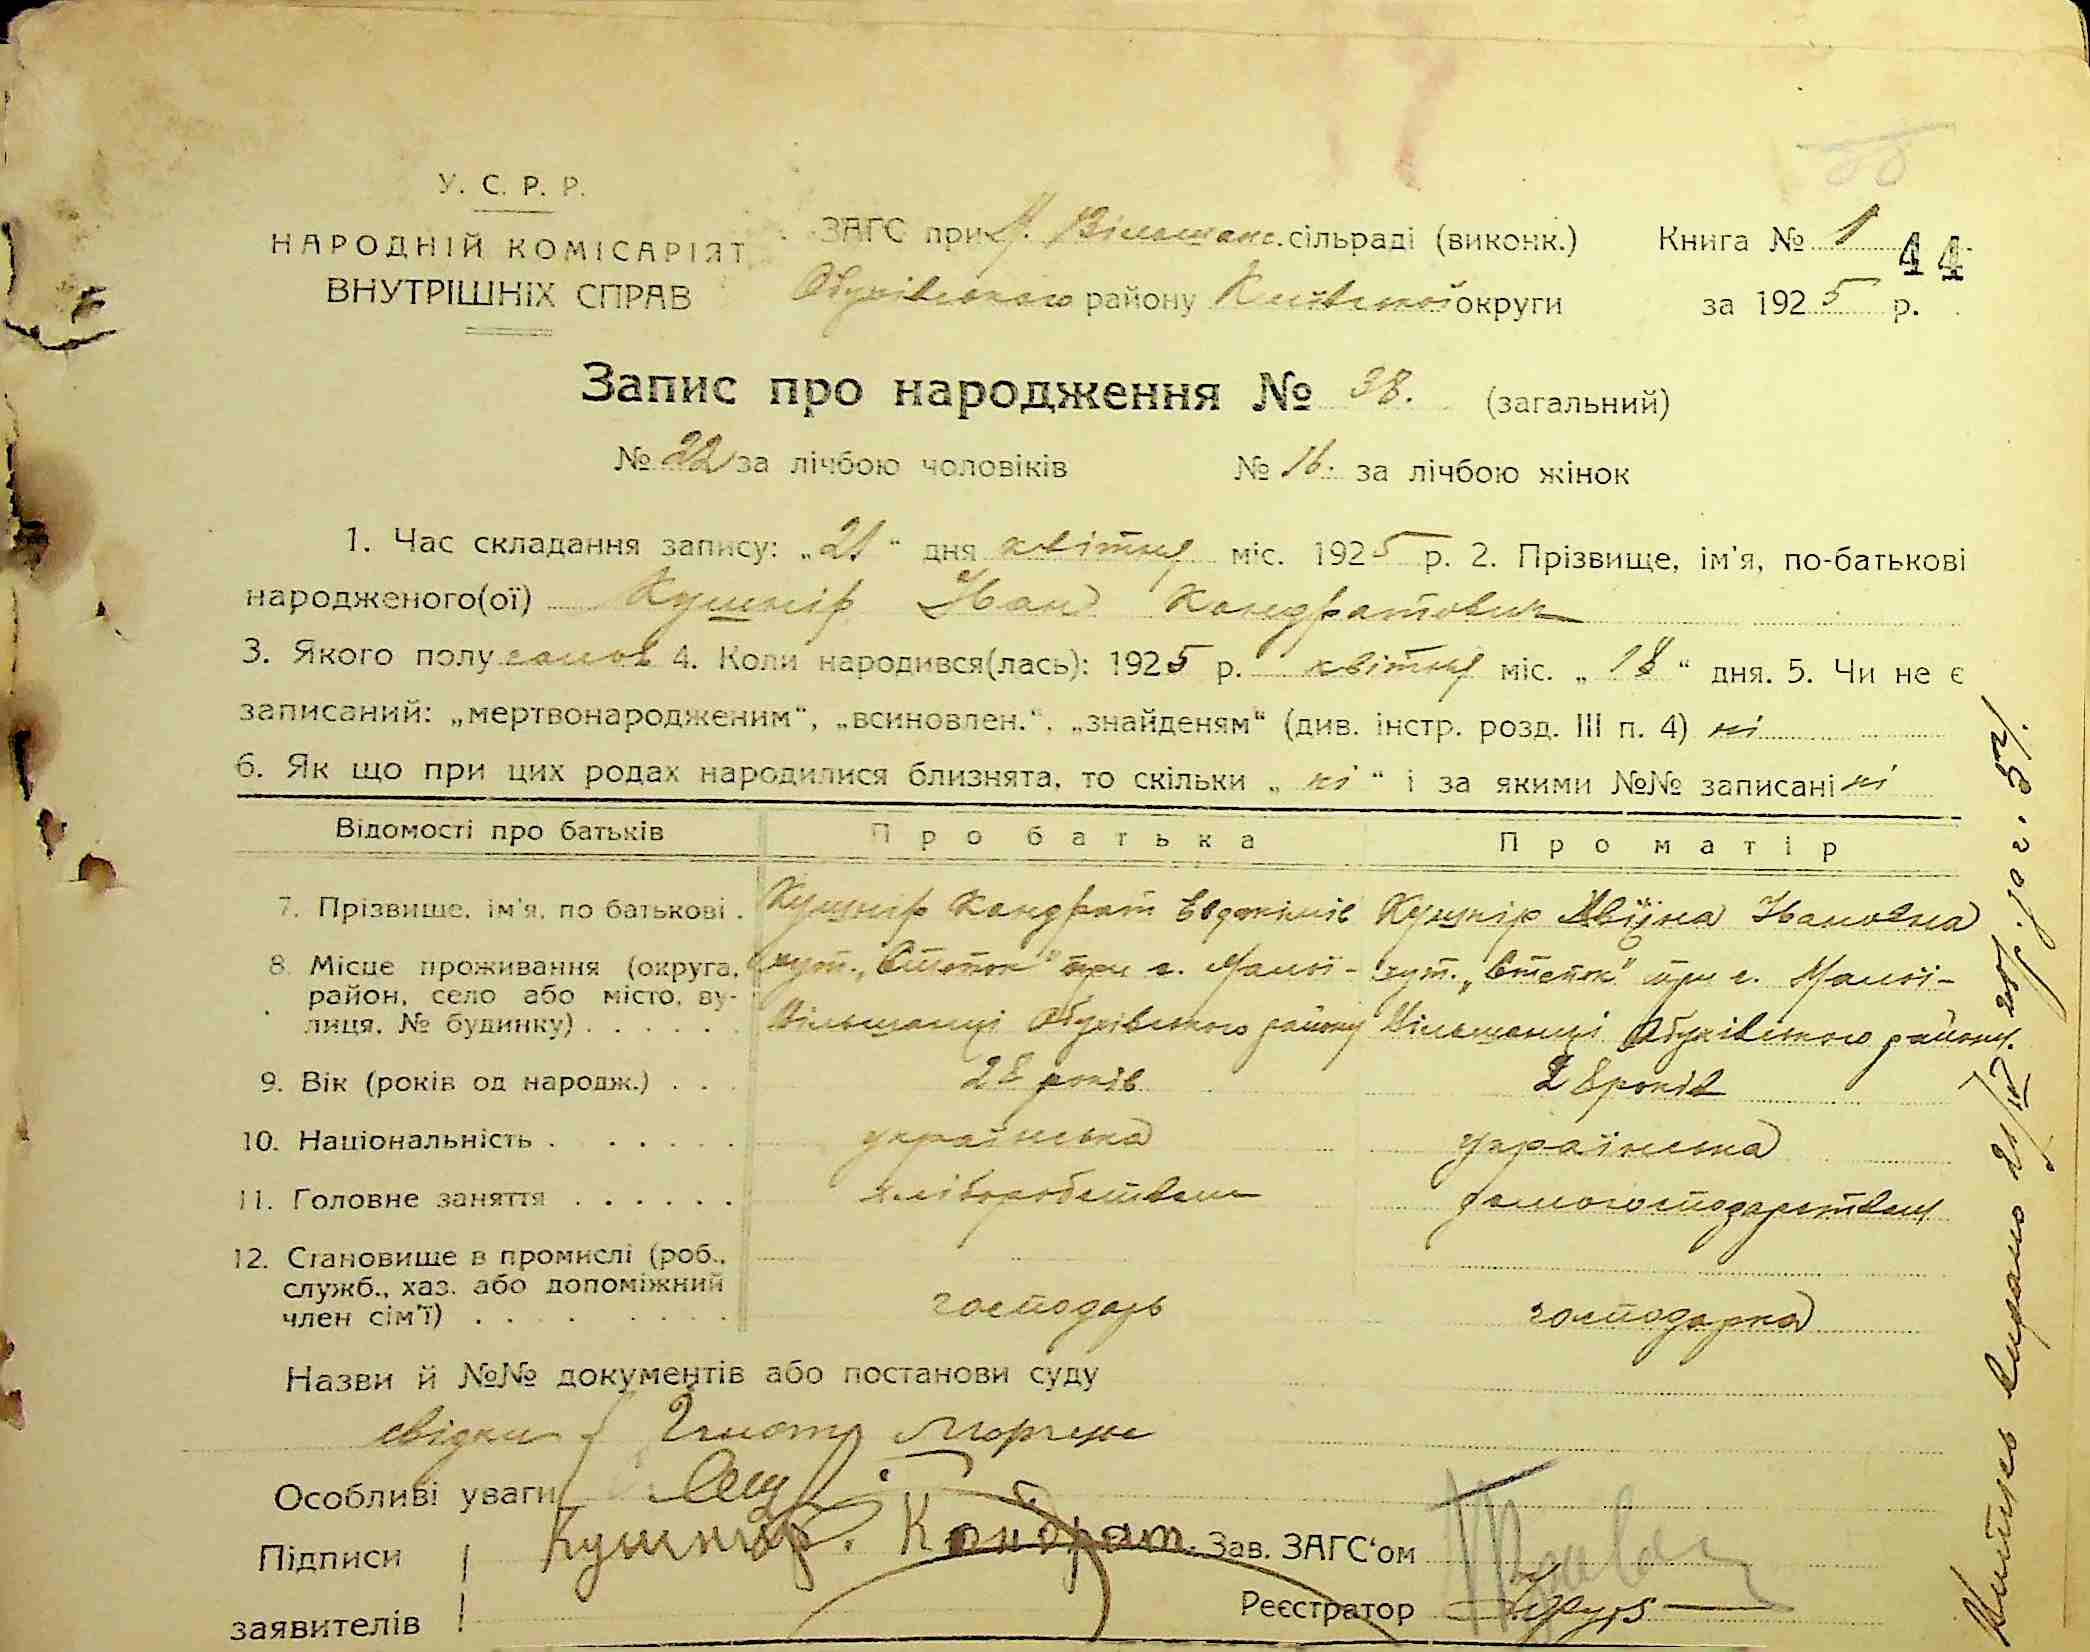 У. С. Р. Р.
НАРОДНІЙ КОМІСАРІЯТ
ВНУТРІШНІХ СПРАВ
ЗАГС при М. Вільшанс. сільраді (виконк.)
Обухівського району Київської округи
Книга № 1
44
за 1925 р.
Запис про народження № 38. (загальний)
№ 22 за лічбою чоловіків № 16. за лічбою жінок
1. Час складання запису: „21“ дня квітня міс. 1925 р. 2. Прізвище, ім'я, по-батькові
народженого(ої) Кушнір Иван Кондратович
3. Якого полу 4. Коли народився(лась): 1925 р. квітня міс. „18“ дня. 5. Чи не є
записаний: „мертвонародженим“, „всиновлен.“, „знайденям“ (див. інстр. розд. III п. 4) ні
6. Як що при цих родах народилися близнята, то скільки „ні“ і за якими №№ записані ні
Відомості про батьків Про батька Про матір
7. Прізвище, ім'я, по батькові . Кушнір Кондрат Кушнір Ивановна
8. Місце проживання (округа, район, село або місто, вулиця, № будинку) . . . . . .
хут. „Степок“ при с. Малої-Вільшанці Обухівського району
хут. „Степок“ при с. Малої-Вільшанці Обухівського району.
9. Вік (років од народж.) . . . 28 років 28 років
10. Національність . . . . . . . українська українська
11. Головне заняття . . . . . . хліборобством домогосподарством
12. Становище в промислі (роб., служб., хаз. або допоміжний член сім'ї) . . . . . . . .
господарь господарка
Назви й №№ документів або постанови суду
свідки
Особливі уваги
Підписи
заявителів
Кушнір. Кондрат.
Зав. ЗАГС'ом
Реєстратор
Витяг видано 21/IV